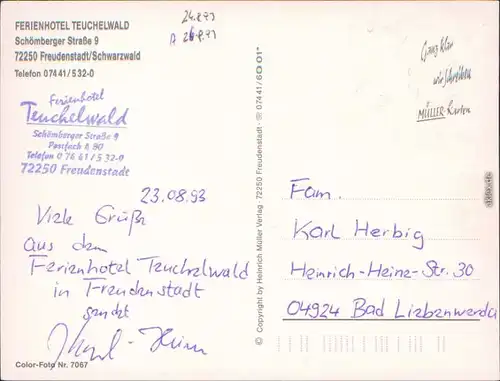 FERIENHOTEL TEUCHELWALD
Schömberger Straße 9
72250 Freudenstadt/Schwarzwald
Telefon 07441/532-0
24.8.93
A 26.8.93
Ganz klar
wir schreiben
MÜLLER-Karten
Ferienhotel
Teuchelwald
Schömberger Straße 9
Postfach 480
Telefon 07441/532-0
72250 Freudenstadt
23.08.93
Viele Grüße
aus dem
Ferienhotel Teuchelwald
in Freudenstadt
sendet
Karl-Heinz
Color-Foto Nr. 7067
© Copyright by Heinrich Müller Verlag · 72250 Freudenstadt · ☎ 07441/60 01*
Fam.
Karl Herbig
Heinrich-Heine-Str. 30
04924 Bad Liebenwerda